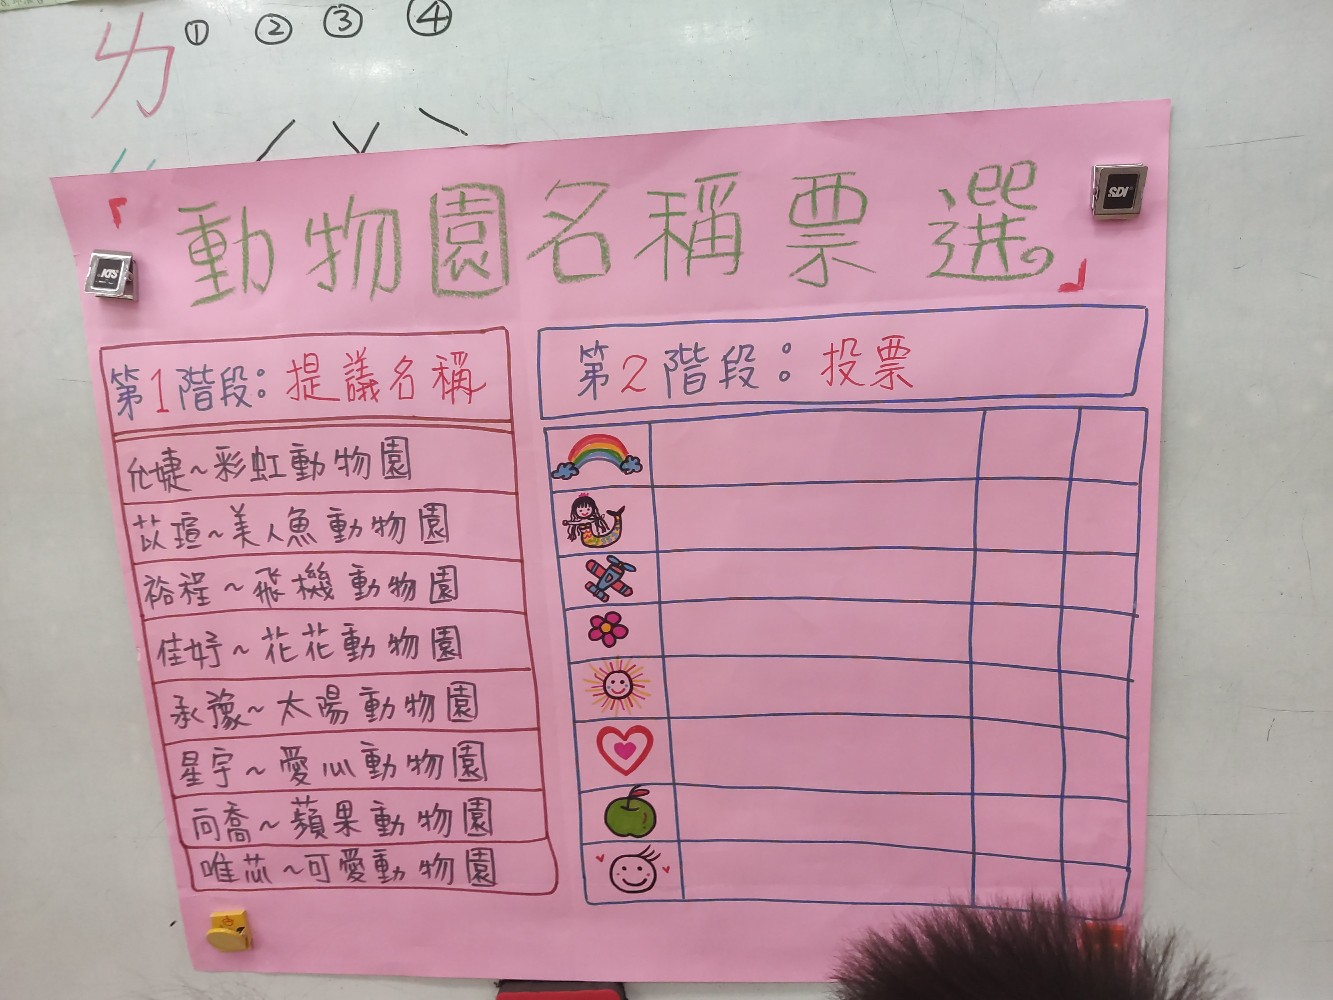 ㄌ ① ② ③ ④
ˊ ˇ ˋ
「動物園名稱票選。」
第1階段:提議名稱
允婕~彩虹動物園
苡瑄~美人魚動物園
裕程~飛機動物園
佳妤~花花動物園
承豫~太陽動物園
星宇~愛心動物園
向喬~蘋果動物園
唯芯~可愛動物園
第2階段:投票
KTS
SDI